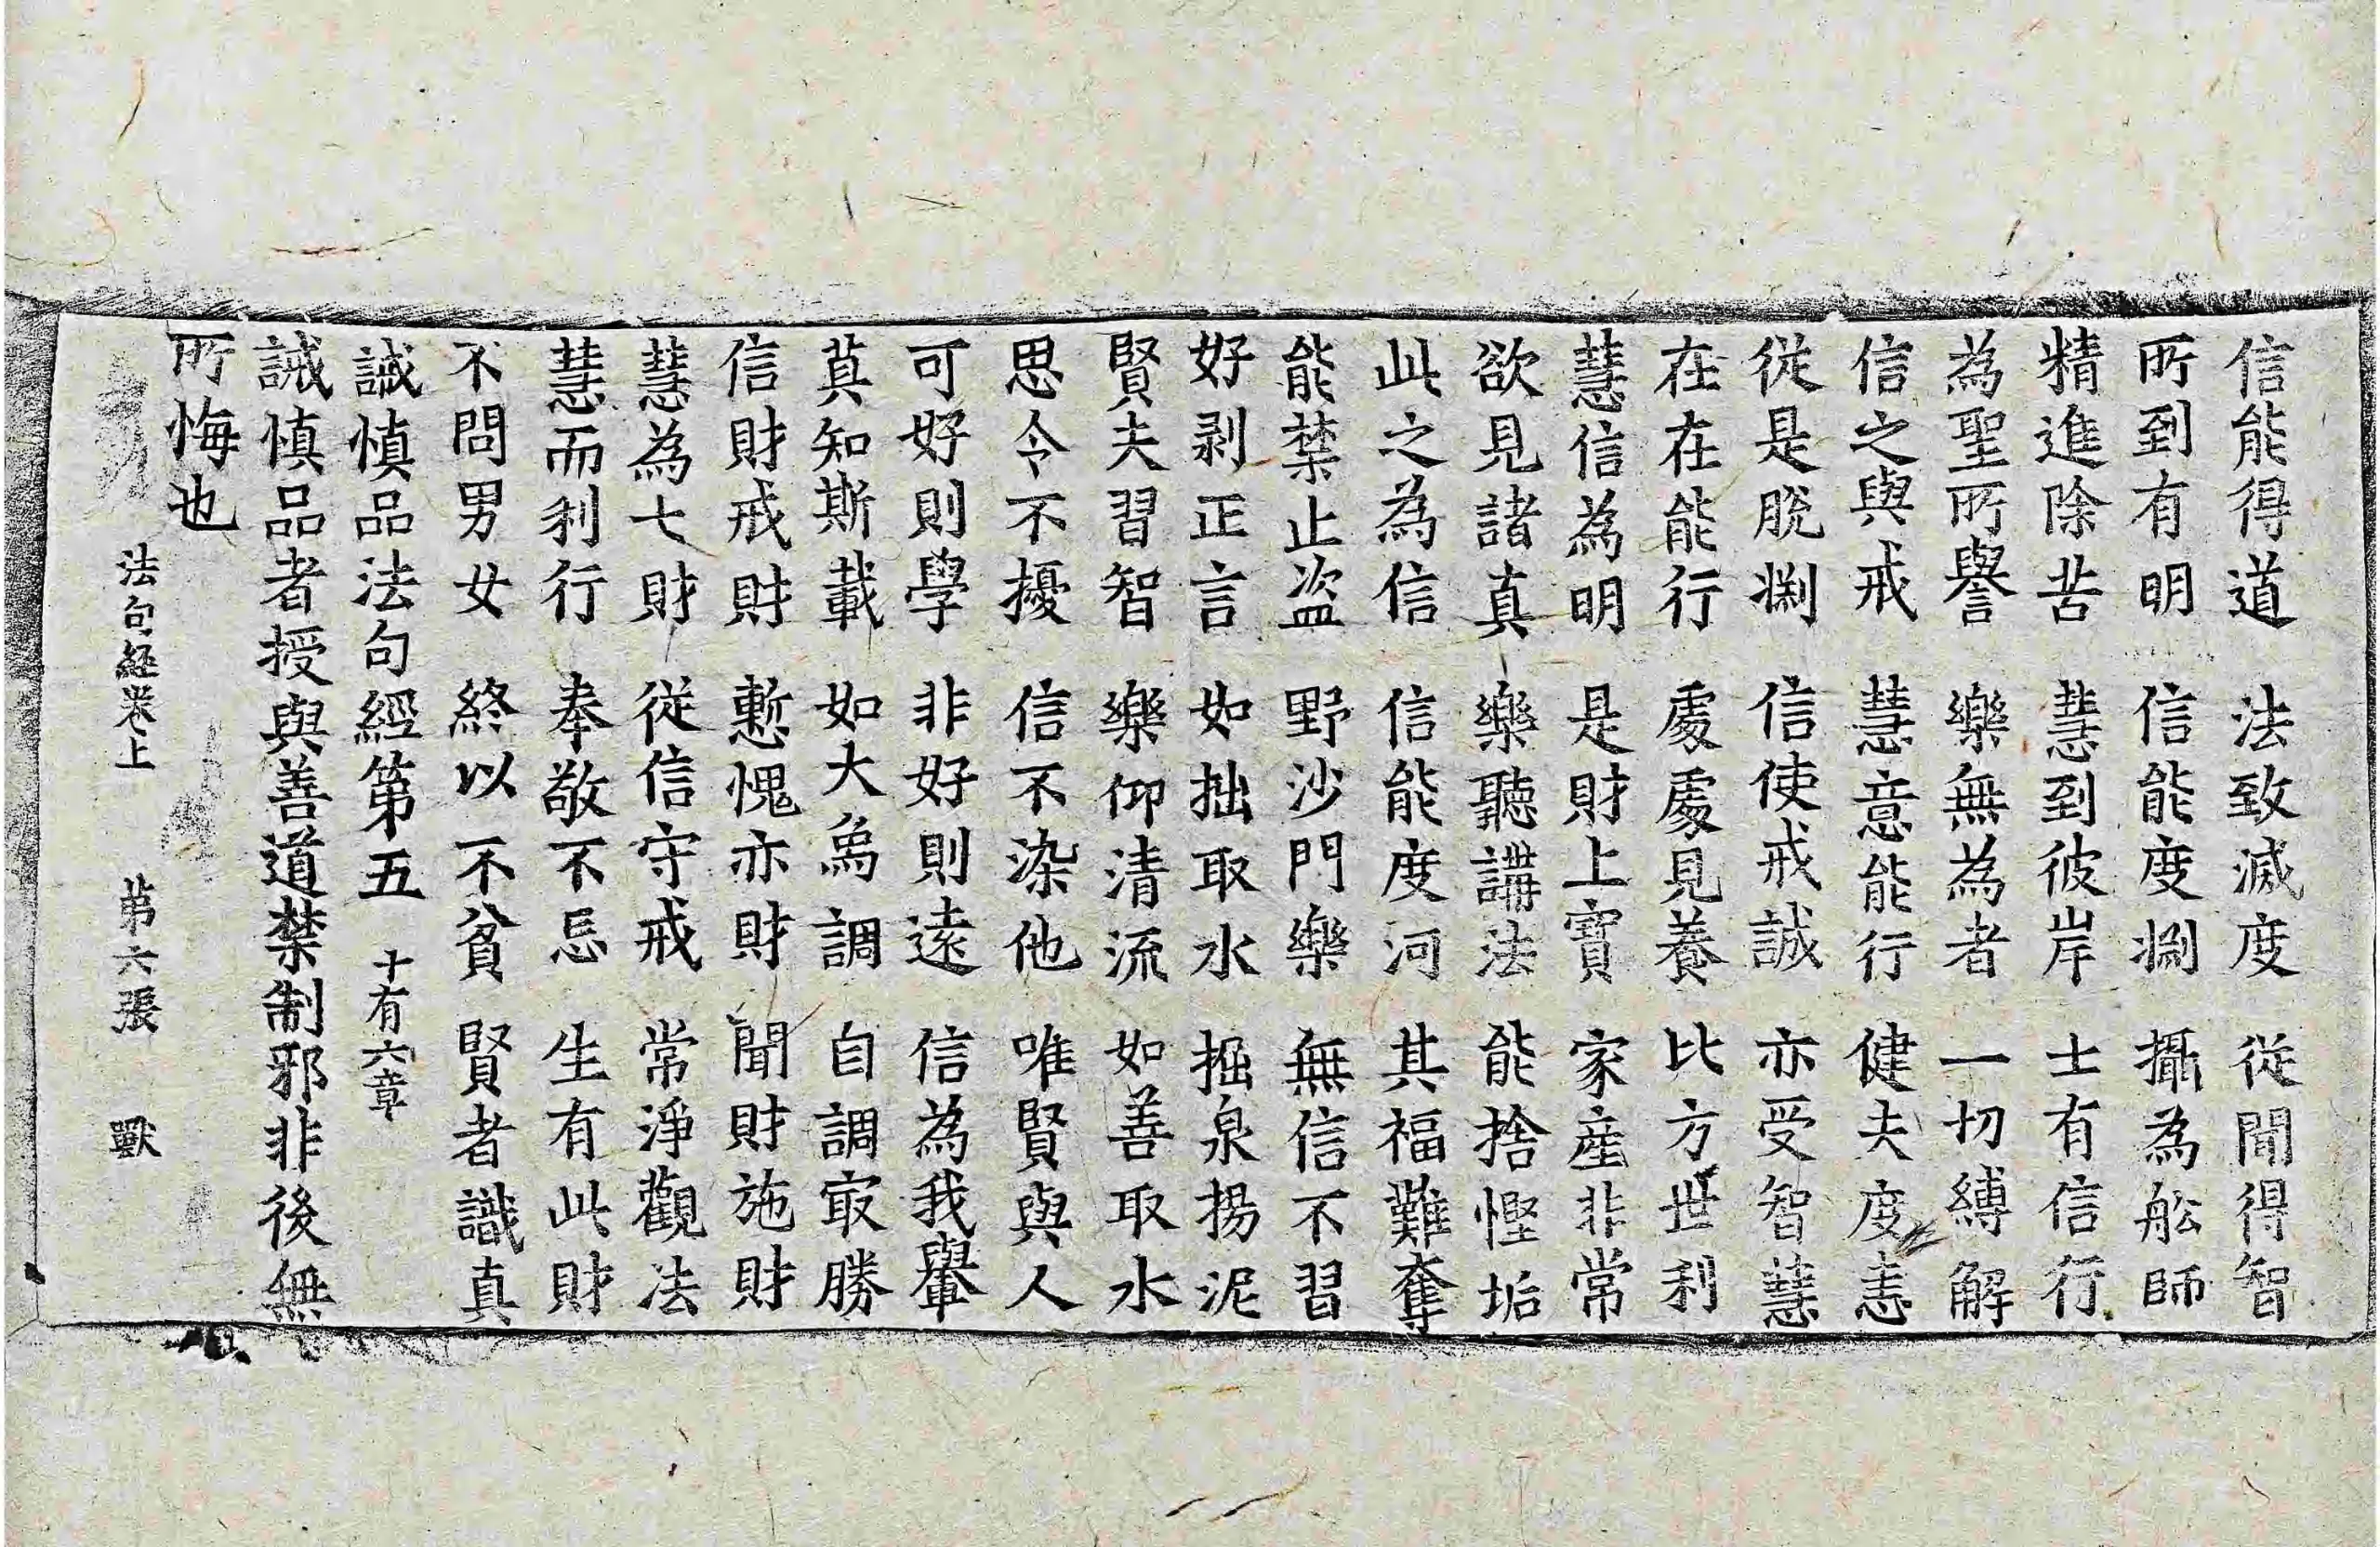 信能得道 法致滅度 從聞得智
所到有明 信能度淵 攝為舩師
精進除苦 慧到彼岸 士有信行
為聖所譽 樂無為者 一切縛解
信之與戒 慧意能行 健夫度恚
從是脫淵 信使戒誠 亦受智慧
在在能行 處處見養 比方世利
慧信為明 是財上寶 家產非常
欲見諸真 樂聽講法 能捨慳垢
此之為信 信能度河 其福難奪
能禁止盜 野沙門樂 無信不習
好剥正言 如拙取水 掘泉揚泥
賢夫習智 樂仰清流 如善取水
思令不擾 信不染他 唯賢與人
可好則學 非好則遠 信為我轝
莫知斯載 如大象調 自調㝡勝
信財戒財 慙愧亦財 聞財施財
慧為七財 從信守戒 常淨觀法
慧而利行 奉敬不忘 生有此財
不問男女 終以不貧 賢者識真
誡慎品法句經第五 十有六章
誡慎品者授與善道禁制邪非後無
所悔也
法句經卷上 第六張 獸